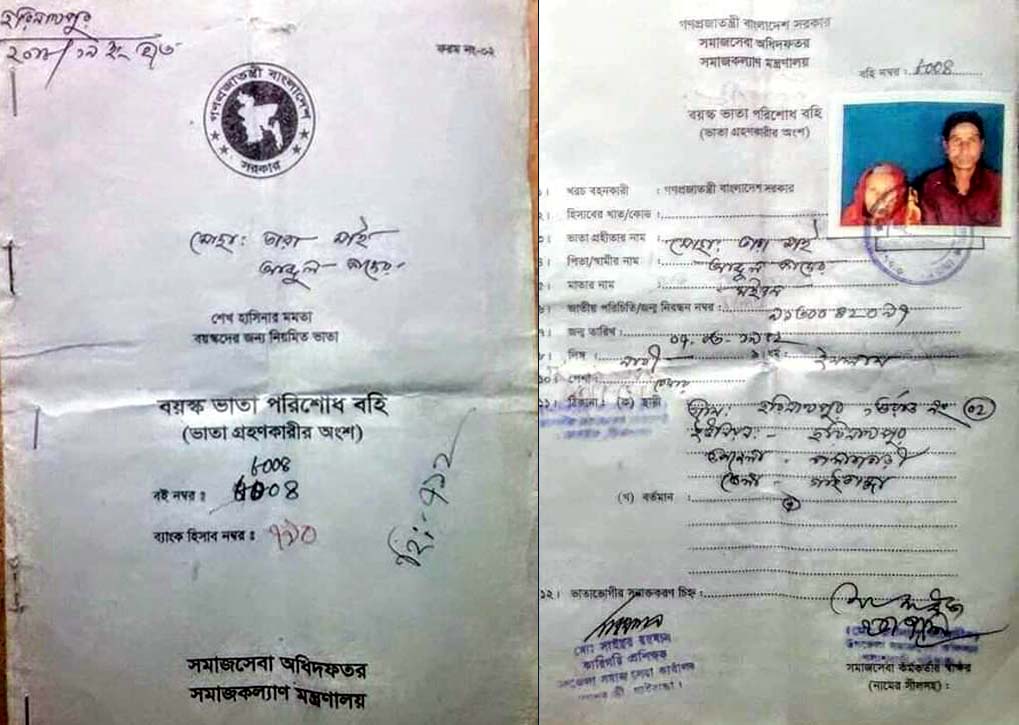 হরিনাথপুর
ফরম নং-০২
গণপ্রজাতন্ত্রী বাংলাদেশ
সরকার
মোছা: তারা
আব্দুল কাদের
শেখ হাসিনার মমতা
বয়স্কদের জন্য নিয়মিত ভাতা
বয়স্ক ভাতা পরিশোধ বহি
(ভাতা গ্রহণকারীর অংশ)
৮০০৪
বই নম্বর ঃ
ব্যাংক হিসাব নম্বর ঃ ৭৯০
সমাজসেবা অধিদফতর
সমাজকল্যাণ মন্ত্রণালয়
গণপ্রজাতন্ত্রী বাংলাদেশ সরকার
সমাজসেবা অধিদফতর
সমাজকল্যাণ মন্ত্রণালয়
বহি নম্বর : ৮০০৪
বয়স্ক ভাতা পরিশোধ বহি
(ভাতা গ্রহণকারীর অংশ)
১। খরচ বহনকারী : গণপ্রজাতন্ত্রী বাংলাদেশ সরকার
২। হিসাবের খাত/কোড :
৩। ভাতা গ্রহীতার নাম : মোছা: তারা
৪। পিতা/স্বামীর নাম : আব্দুল কাদের
৫। মাতার নাম :
৬। জাতীয় পরিচিতি/জন্ম নিবন্ধন নম্বর :
৭। জন্ম তারিখ :
৮। লিঙ্গ : নারী ৯। ধর্ম : ইসলাম
১০। পেশা :
১১। ঠিকানা : (ক) স্থায়ী গ্রাম: হরিনাথপুর, ওয়ার্ড নং ০২
ইউনিয়ন:- হরিনাথপুর
উপজেলা - পলাশবাড়ী
জেলা - গাইবান্ধা
(খ) বর্তমান : ঐ
১২। ভাতাভোগীর সনাক্তকরণ চিহ্ন :
কারিগরি প্রশিক্ষক
উপজেলা সমাজ সেবা কার্যালয়
সমাজসেবা কর্মকর্তার স্বাক্ষর
(নামের সীলসহ) :